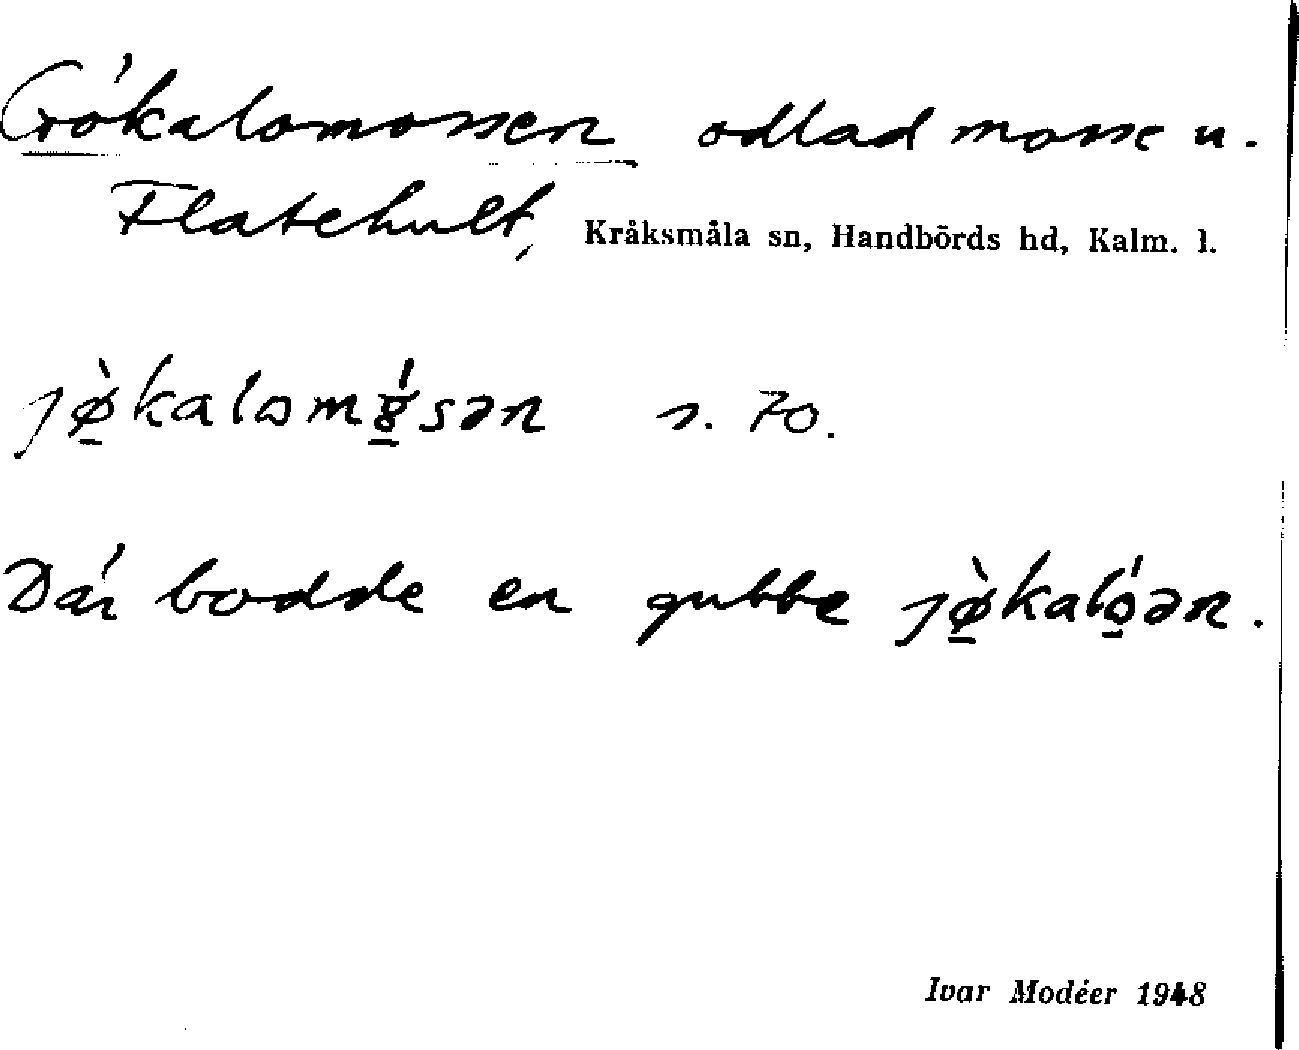 Gökalamossen odlad mosse u.
Flatehult, Kråksmåla sn, Handbörds hd, Kalm. l.
jø̀kalɷmɤ́sən s. 70.
Där bodde en gubbe jø̀kalɷ́ən.
Ivar Modéer 1948